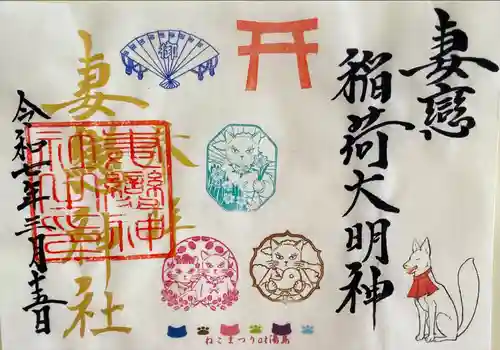 妻戀
稲荷大明神
御
妻戀神社
令和七年二月十五日
ねこまつりat湯島